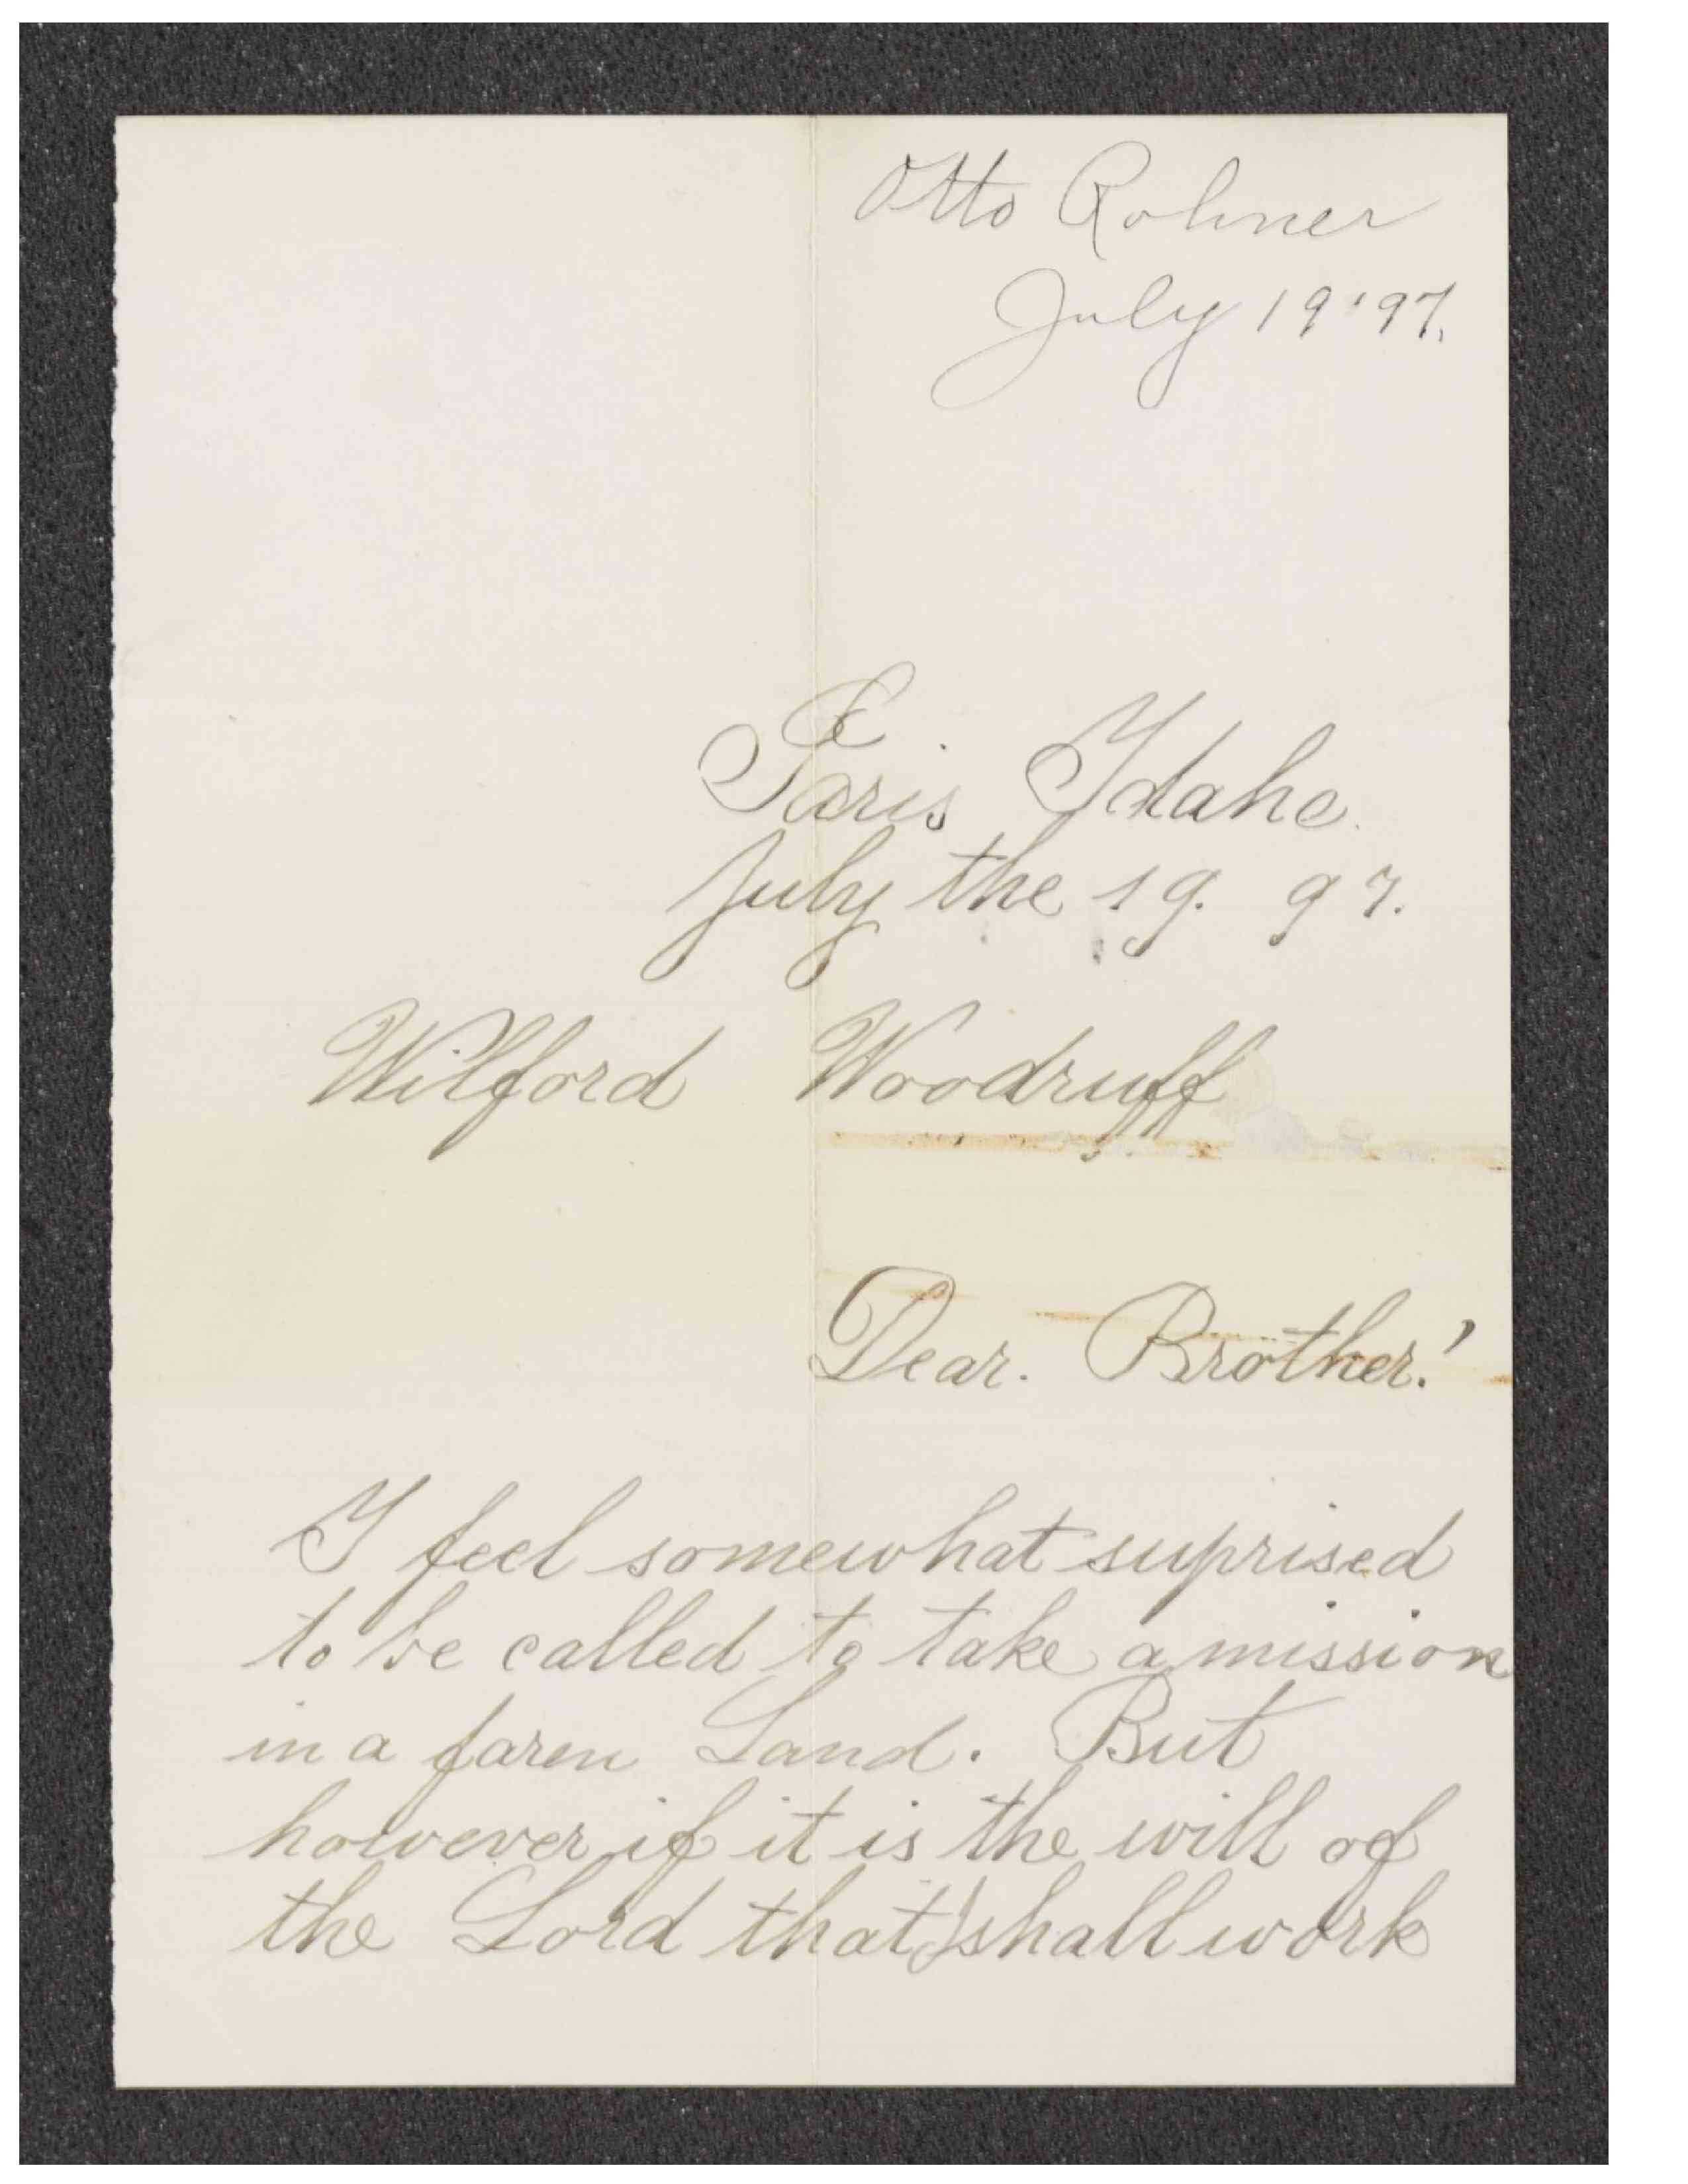 Otto Rohner
July 19 '97.
Paris Idaho.
July the 19. 97.
Wilford Woodruff
Dear. Brother!
I feel somewhat suprised
to be called to take a mission
in a faren Land. But
however if it is the will of
the Lord that I shall work